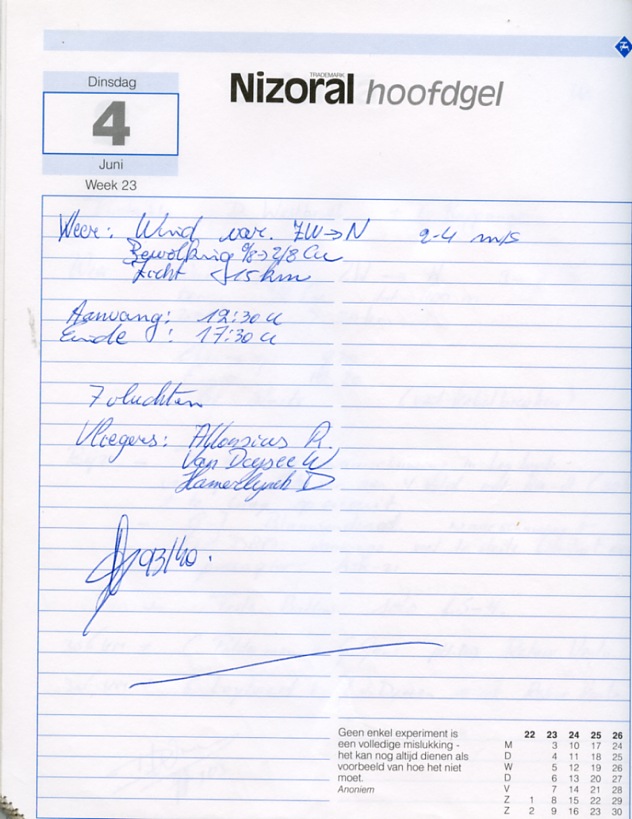 Dinsdag
4
Juni
Week 23
TRADEMARK
Nizoral hoofdgel
Weer: Wind var. ZW→N 2-4 m/s
Bewolking 0/8→2/8 Cu
Zicht 15km
Aanvang: 12:30 u
Einde : 17:30 u
7 vluchten
Vliegers: R.
Van W
Hamerlynck D
93/40.
Geen enkel experiment is
een volledige mislukking -
het kan nog altijd dienen als
voorbeeld van hoe het niet
moet.
Anoniem
22 23 24 25 26
M 3 10 17 24
D 4 11 18 25
W 5 12 19 26
D 6 13 20 27
V 7 14 21 28
Z 1 8 15 22 29
Z 2 9 16 23 30